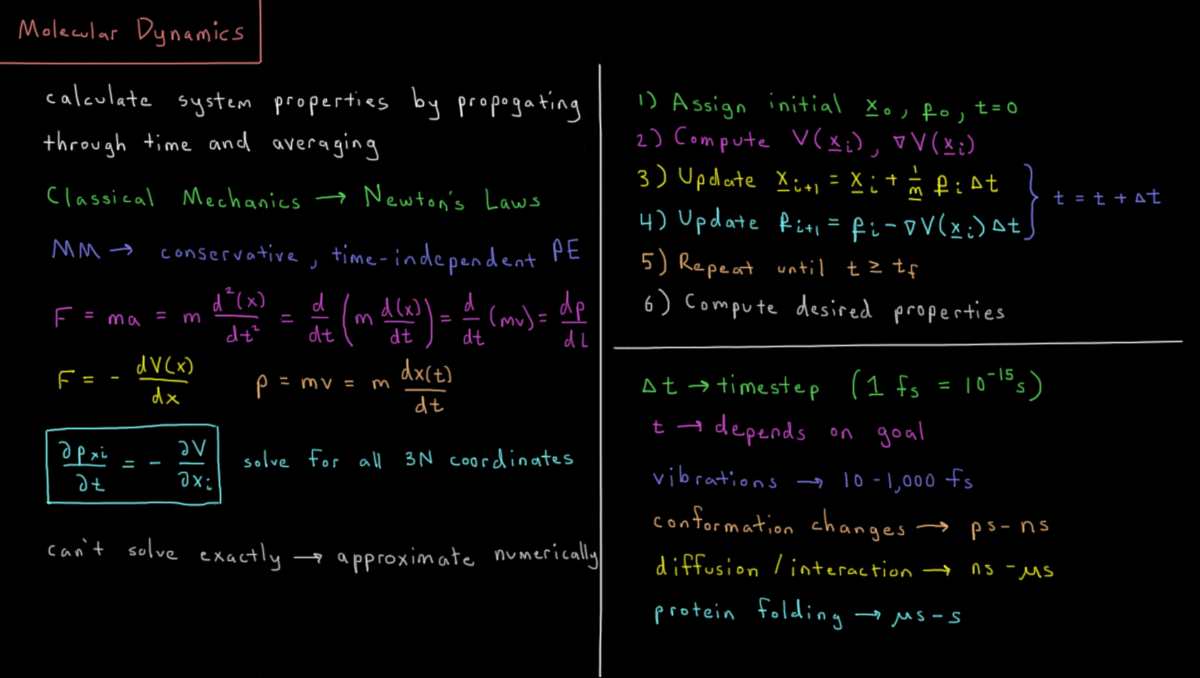 Molecular Dynamics
calculate system properties by propogating
through time and averaging
Classical Mechanics → Newton's Laws
MM → conservative, time-independent PE
F = ma = m d²(x)/dt² = d/dt (m d(x)/dt) = d/dt (mv) = dp/dt
F = - dV(x)/dx   p = mv = m dx(t)/dt
∂p_xi/∂t = - ∂V/∂x_i   solve for all 3N coordinates
can't solve exactly → approximate numerically
1) Assign initial x₀, p₀, t=0
2) Compute V(x_i), ∇V(x_i)
3) Update x_i+1 = x_i + 1/m p_i Δt
4) Update p_i+1 = p_i - ∇V(x_i) Δt
} t = t + Δt
5) Repeat until t ≥ t_f
6) Compute desired properties
Δt → timestep (1 fs = 10⁻¹⁵s)
t → depends on goal
vibrations → 10-1,000 fs
conformation changes → ps-ns
diffusion / interaction → ns-μs
protein folding → μs-s